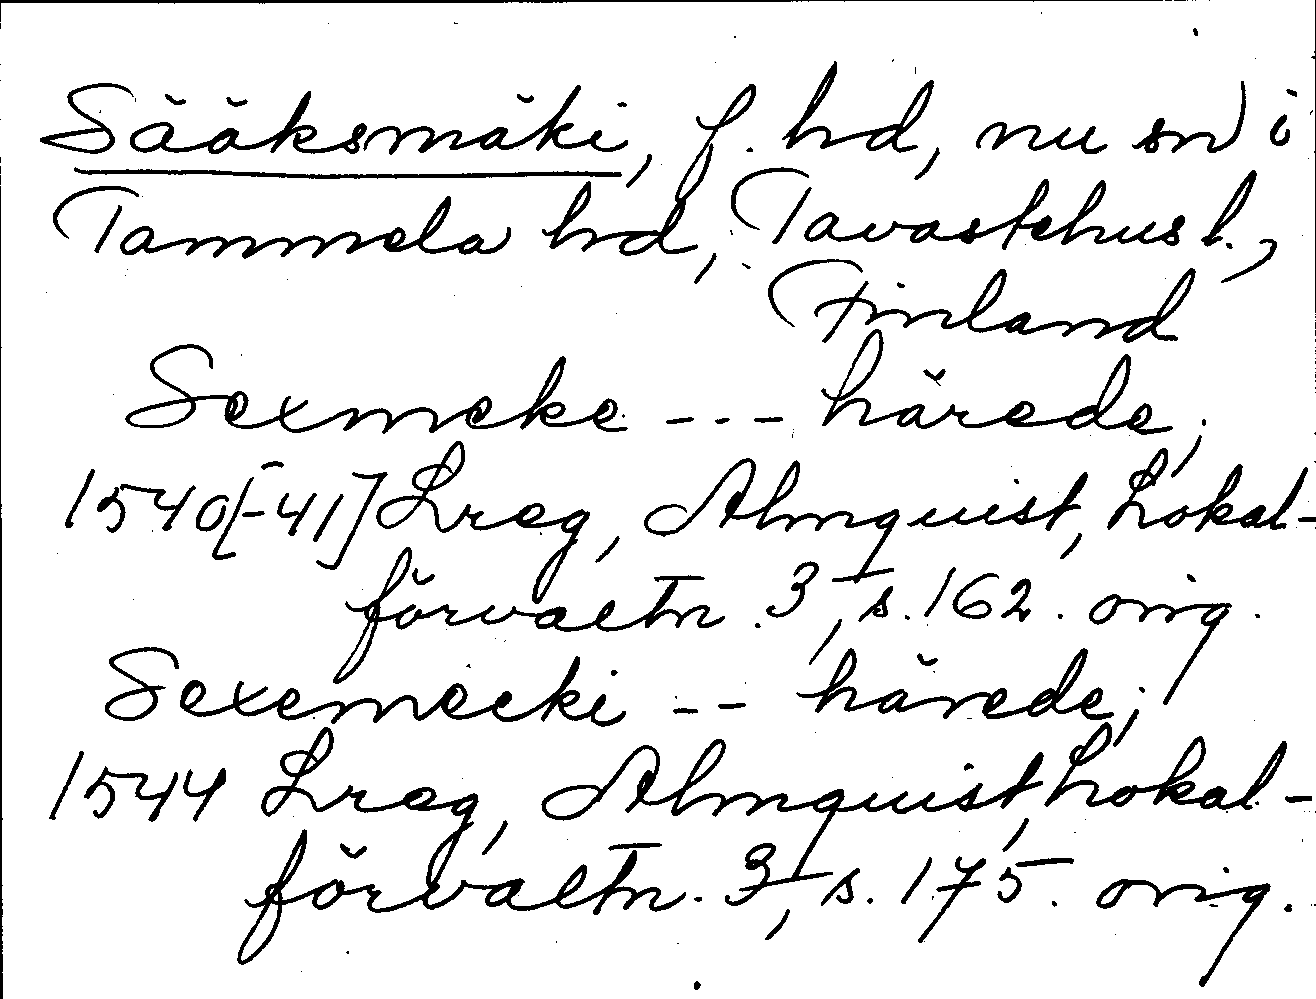 Sääksmäki, f. hd, nu sn i
Tammela hd, Tavastehus l.,
Finland
Sexmeke --- härede,
1540[-41] Lreg, Almquist, Lokal-
förvaltn. 3, s. 162. orig.
Sexemecki -- härede;
1544 Lreg, Almquist, Lokal-
förvaltn. 3, s. 175. orig.